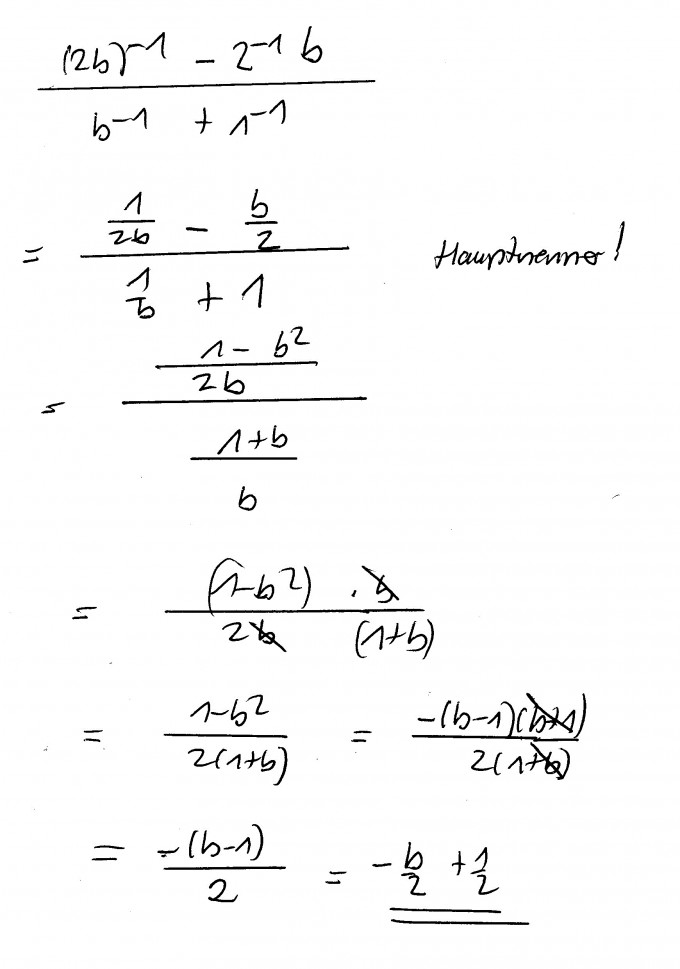 (2b)⁻¹ − 2⁻¹ b
b⁻¹ + 1⁻¹
= 1/2b − b/2
1/b + 1 Hauptnenner!
= 1 − b²
2b
1+b
b
= (1−b²) · b
2b (1+b)
= 1−b² / 2(1+b) = −(b−1)(b+1) / 2(1+b)
= −(b−1) / 2 = −b/2 + 1/2